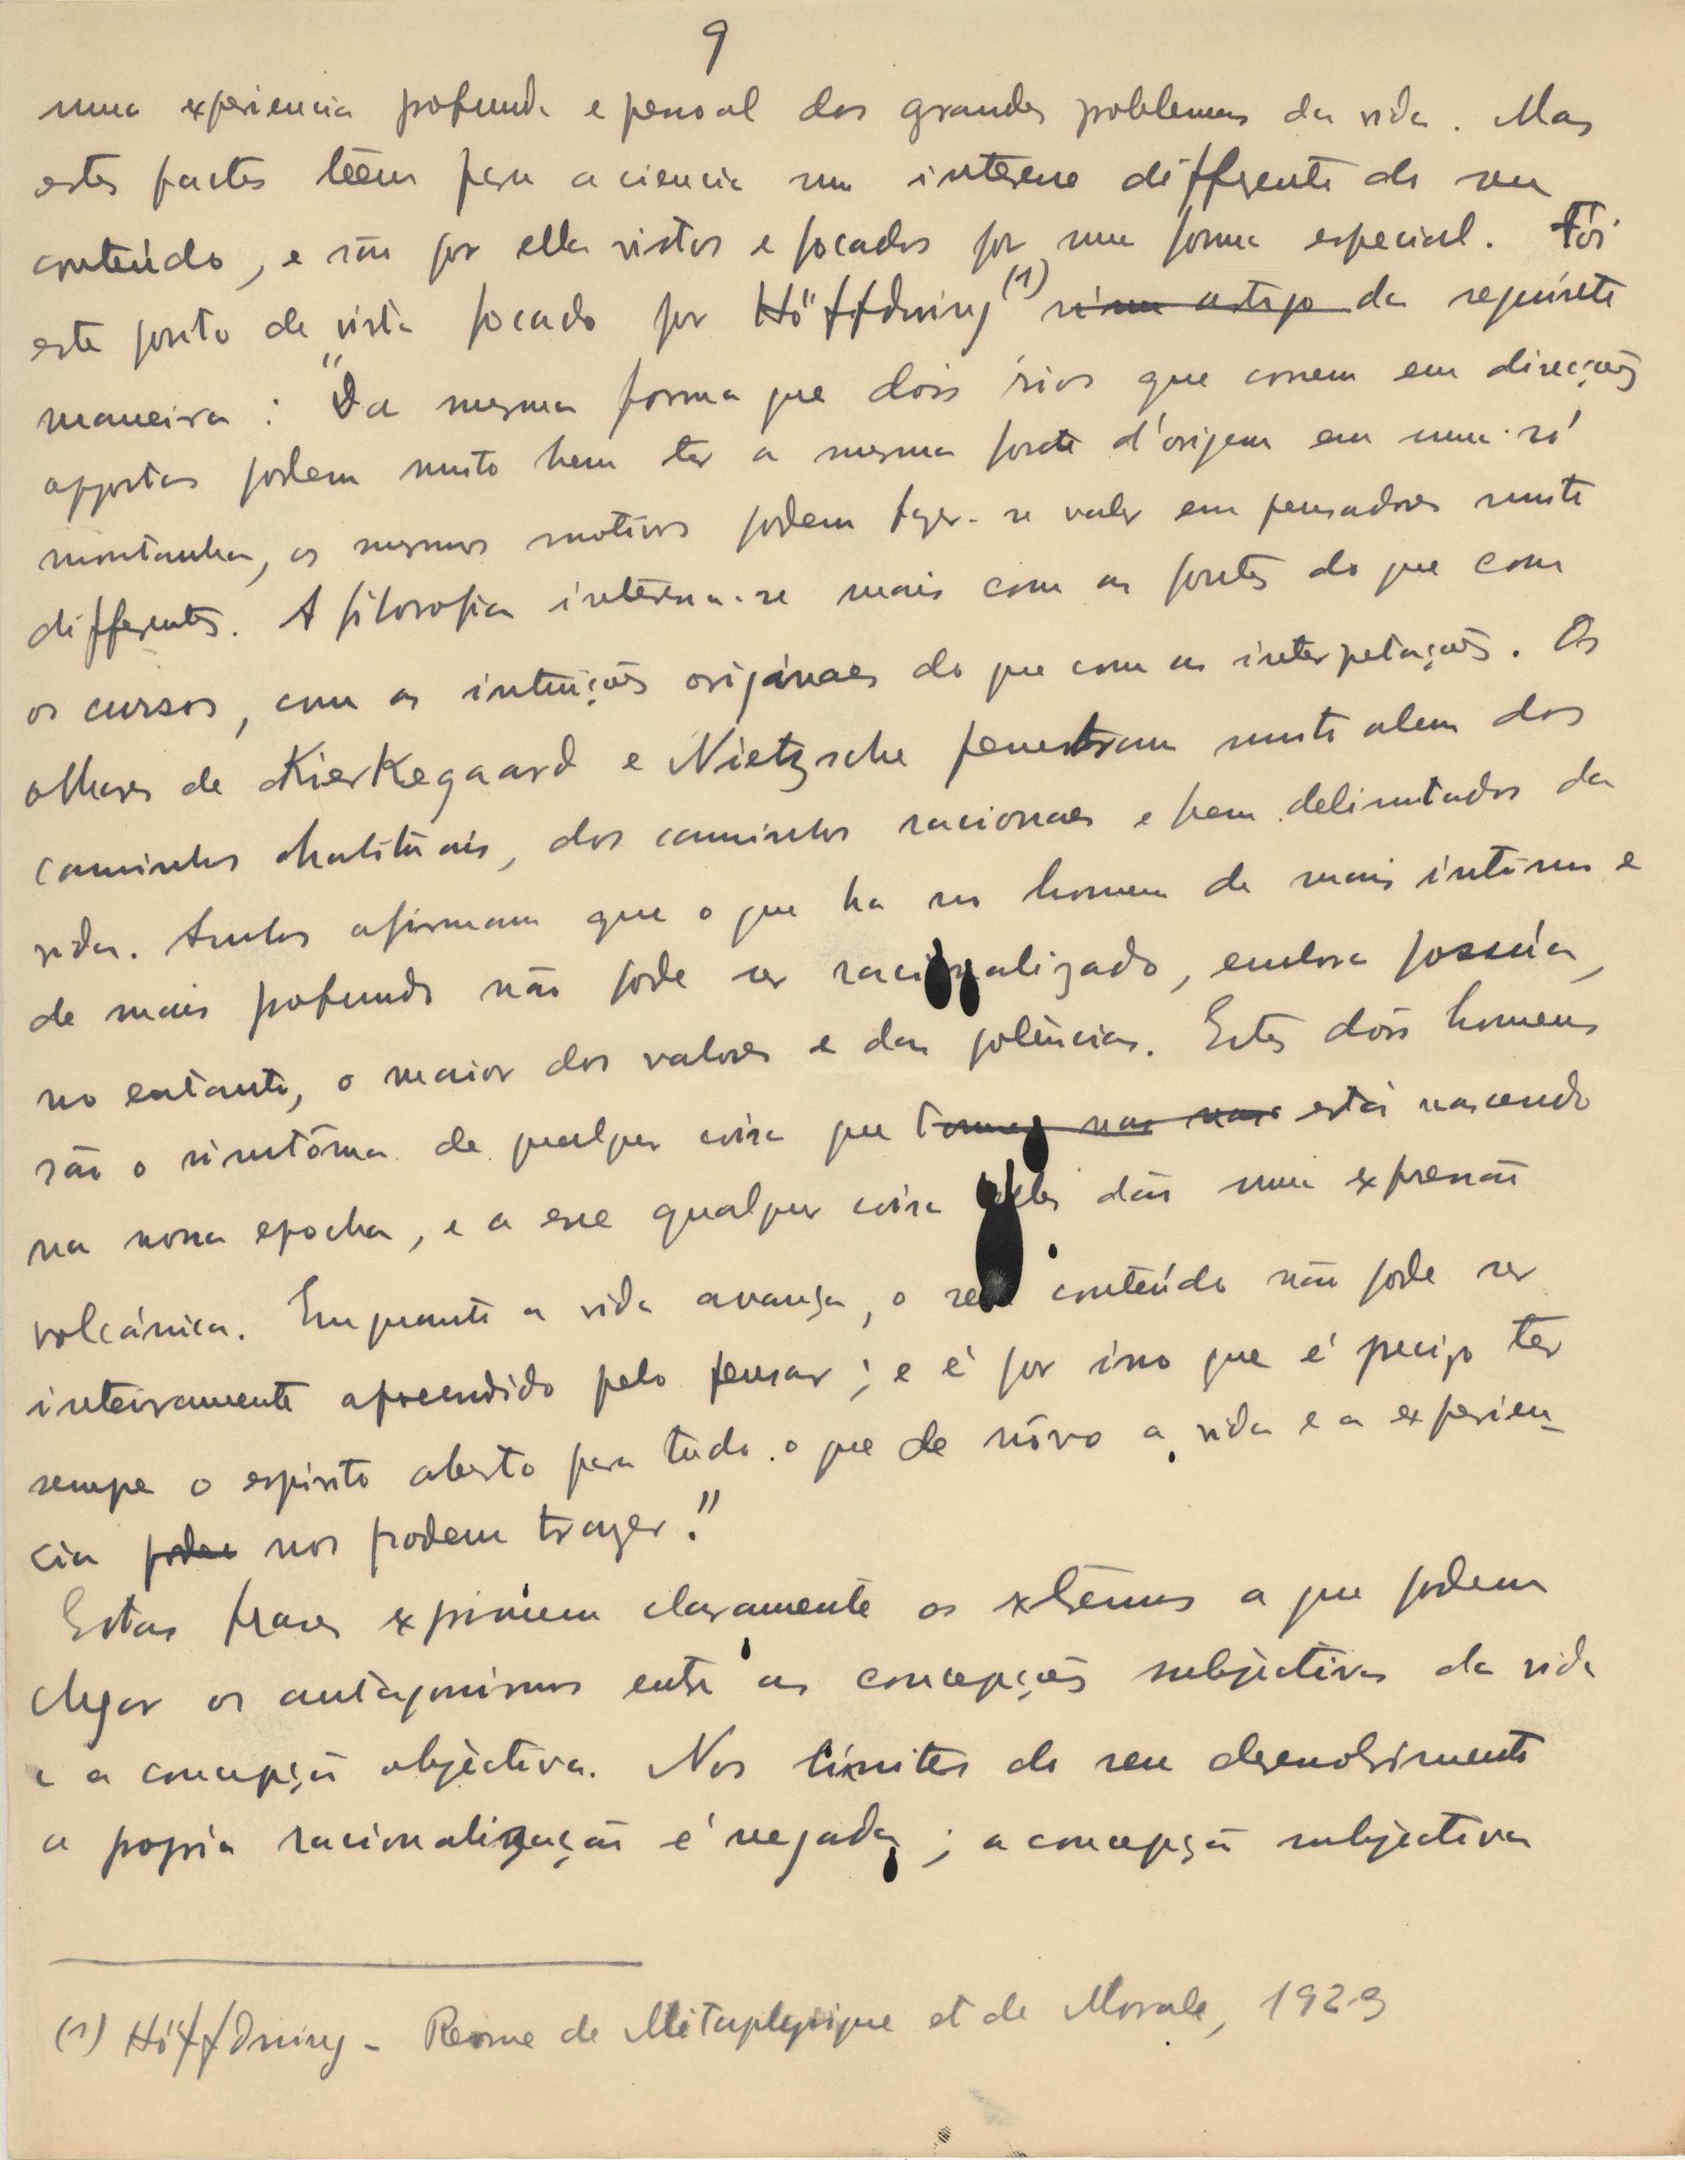 9
uma experiencia profunda e pessoal dos grandes problemas da vida. Mas
estes factos têem para a ciencia um interesse differente do seu
conteúdo, e são por ella vistos e focados por uma forma especial. Fôi
este ponto de vista focado por Höffdning (1) n'um artigo da seguinte
maneira: "Da mesma forma que dois rios que correm em direcções
oppostas podem muito bem ter a mesma fonte d'origem em uma só
montanha, os mesmos motivos podem fazer-se valer em pensadores muito
differentes. A filosofia interessa-se mais com as fontes do que com
os cursos, com as intuições originaes do que com as interpretações. Os
olhares de Kierkegaard e Nietzsche penetram muito alem dos
caminhos habituais, dos caminhos racionaes e bem delimitados da
vida. Ambos afirmam que o que ha no homem de mais intimo e
de mais profundo não pode ser racionalizado, embora possúa,
no entanto, o maior dos valores e das potências. Estes dois homens
são o simtôma de qualquer coisa que está nascendo
na nossa epocha, e a esse qualquer coisa elles dão uma expressão
volcánica. Emquanto a vida avança, o seu conteúdo não pode ser
inteiramente apreendido pelo pensar; e é por isso que é preciso ter
sempre o espirito aberto para tudo o que de nôvo a vida e a experien-
cia poder nos podem trazer."
Estas frases exprimem claramente os extrêmos a que podem
chegar os antagonismos entre as concepções subjectivas da vida
e a concepção objéctiva. Nos limites do seu desenvolvimento
a propria racionalização é negada; a concepção subjectiva
(1) Höffdning - Revue de Métaphysique et de Morale, 1923